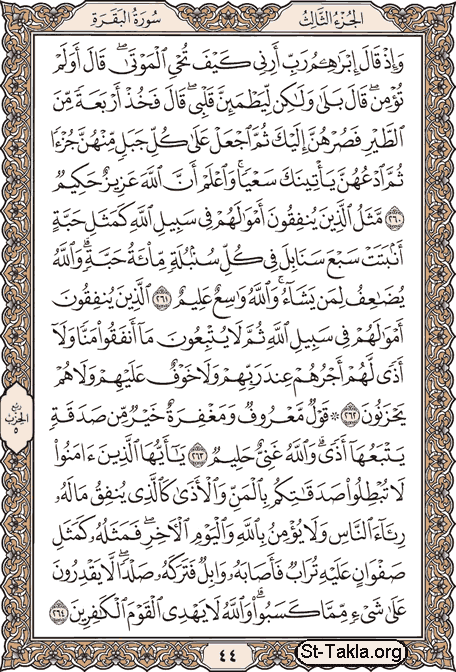 الجزء الثالث
سورة البقرة
وَإِذْ قَالَ إِبْرَٰهِـۧمُ رَبِّ أَرِنِى كَيْفَ تُحْىِ ٱلْمَوْتَىٰ ۖ قَالَ أَوَلَمْ
تُؤْمِن ۖ قَالَ بَلَىٰ وَلَـٰكِن لِّيَطْمَئِنَّ قَلْبِى ۖ قَالَ فَخُذْ أَرْبَعَةً مِّنَ
ٱلطَّيْرِ فَصُرْهُنَّ إِلَيْكَ ثُمَّ ٱجْعَلْ عَلَىٰ كُلِّ جَبَلٍ مِّنْهُنَّ جُزْءًا
ثُمَّ ٱدْعُهُنَّ يَأْتِينَكَ سَعْيًا ۚ وَٱعْلَمْ أَنَّ ٱللَّهَ عَزِيزٌ حَكِيمٌ
٢٦٠ مَّثَلُ ٱلَّذِينَ يُنفِقُونَ أَمْوَٰلَهُمْ فِى سَبِيلِ ٱللَّهِ كَمَثَلِ حَبَّةٍ
أَنۢبَتَتْ سَبْعَ سَنَابِلَ فِى كُلِّ سُنۢبُلَةٍ مِّا۟ئَةُ حَبَّةٍ ۗ وَٱللَّهُ
يُضَـٰعِفُ لِمَن يَشَآءُ ۗ وَٱللَّهُ وَٰسِعٌ عَلِيمٌ ٢٦١ ٱلَّذِينَ يُنفِقُونَ
أَمْوَٰلَهُمْ فِى سَبِيلِ ٱللَّهِ ثُمَّ لَا يُتْبِعُونَ مَآ أَنفَقُوا۟ مَنًّا وَلَآ
أَذًى ۙ لَّهُمْ أَجْرُهُمْ عِندَ رَبِّهِمْ وَلَا خَوْفٌ عَلَيْهِمْ وَلَا هُمْ
يَحْزَنُونَ ٢٦٢ ۞ قَوْلٌ مَّعْرُوفٌ وَمَغْفِرَةٌ خَيْرٌ مِّن صَدَقَةٍ
يَتْبَعُهَآ أَذًى ۗ وَٱللَّهُ غَنِىٌّ حَلِيمٌ ٢٦٣ يَـٰٓأَيُّهَا ٱلَّذِينَ ءَامَنُوا۟
لَا تُبْطِلُوا۟ صَدَقَـٰتِكُم بِٱلْمَنِّ وَٱلْأَذَىٰ كَٱلَّذِى يُنفِقُ مَالَهُۥ
رِئَآءَ ٱلنَّاسِ وَلَا يُؤْمِنُ بِٱللَّهِ وَٱلْيَوْمِ ٱلْـَٔاخِرِ ۖ فَمَثَلُهُۥ كَمَثَلِ
صَفْوَانٍ عَلَيْهِ تُرَابٌ فَأَصَابَهُۥ وَابِلٌ فَتَرَكَهُۥ صَلْدًا ۖ لَّا يَقْدِرُونَ
عَلَىٰ شَىْءٍ مِّمَّا كَسَبُوا۟ ۗ وَٱللَّهُ لَا يَهْدِى ٱلْقَوْمَ ٱلْكَـٰفِرِينَ ٢٦٤
ربع
الحزب
٥
٤٤
St-Takla.org